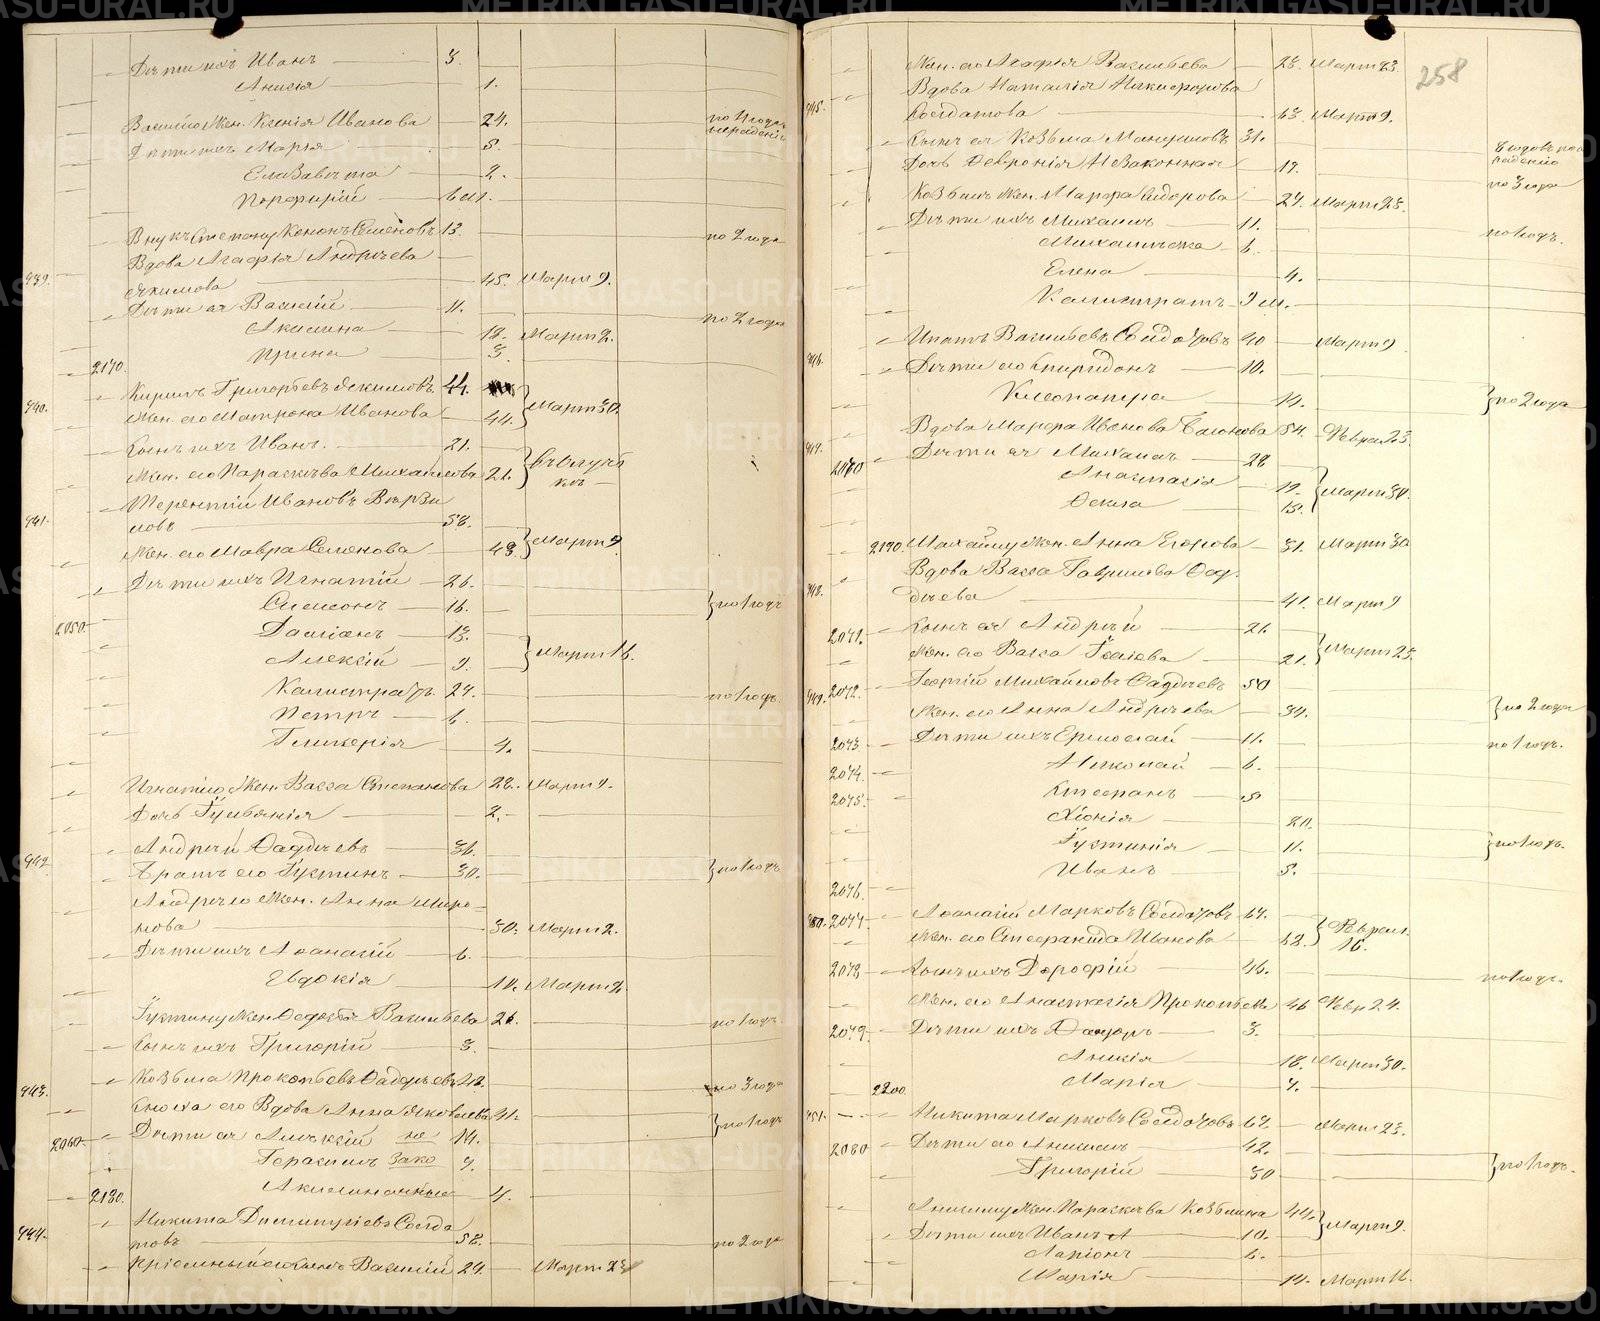 258
Дѣти ихъ Иванъ 3.
Анисія 1.
Василію Жен. Ксенія Иванова 24. по 1 году нерадѣнію
Дѣти ихъ Марья 5.
Елизавета 2.
Порфирій 6 м.
Внукъ Степану Кононъ Семеновъ 13. по 2 года
Вдова Агафія Андреева
939. Якимова 45. Март 9.
Дѣти ея Василій 11. по 2 года
Акилина 12. Март 2.
Ирина 3.
2170.
940. Кирилъ Григорьевъ Якимовъ 44.
Жен. его Матрона Иванова 44. Март 30.
Сынъ ихъ Иванъ. 21.
Жен. его Параскева Михаилова 21. въ отлучкѣ
Терентій Ивановъ Вырзи
941. ловъ 58.
Жен. его Мавра Семенова 48. Март 9
Дѣти ихъ Игнатій 26.
Симеонъ 16. по 1 годъ
2050. Даміанъ 13.
Алексій 9. Март 16.
Калистратъ 24. по 1 годъ
Петръ 6.
Гликерія 4.
Игнатію Жен. Васса Степанова 22. Март 9.
Дочь Гульянія 2.
Андрей Фадѣевъ 36.
942. Братъ его Густинъ 30. по 1 годъ
Андрею Жен. Анна Миро-
нова 30. Март 2.
Дѣти ихъ Афанасій 6.
Евдокія 10. Март 2.
Густину Жен. Федосья Васильева 26. по 1 годъ
Сынъ ихъ Григорій 3.
943. Козьма Прокопьевъ Фадѣевъ 42. по 3 года
Сноха его Вдова Анна Яковлева 41. по 1 годъ
2060 Дѣти ея Алексѣй не 14.
Герасимъ зако 7.
2180. Акилина нные 4.
Никита Димитріевъ Солда
944. товъ 58. по 2 года
Пріемный сынъ Василій 24. Март 23
Жен. его Агафія Васильева 23. Март 23.
Вдова Наталія Никифорова
945. Солдатова 63. Март 9.
Сынъ ея Козьма Мануиловъ 31. 8 годовъ по нерадѣнію
Дочь Февронія Незаконная 19. по 3 года
Козьмы Жен. Марфа Сидорова 24. Март 23.
Дѣти ихъ Михаилъ 11. по 1 годъ.
Михаилъ же 6.
Елена 4.
Калистратъ 9 м.
Ипатъ Васильевъ Солдатовъ 40 Март 9
946. Дѣти его Спиридонъ 10.
Клеопатра 14. по 2 года
947. Вдова Марфа Иванова 54. Феврал. 23.
Дѣти ея Михаилъ 28
Анастасія 19.
Фекла 15. Март 30.
2190. Михаилу Жен. Анна Егорова 31. Март 30
Вдова Васса Гаврилова Фад.
948. дѣева 41. Март 9
2071. Сынъ ея Андрей 21.
Жен. его Васса Исаева 21. Март 23.
949. 2072. Георгій Михайловъ Фадѣевъ 50
Жен. его Анна Андреева 34. по 2 года
2073. Дѣти ихъ Ермолай 11. по 1 годъ.
2074. Николай 6.
2075. Стефанъ 5
Хіонія 20.
Густинія 11. по 1 годъ.
2076. Иванъ 5.
950. 2077. Афанасій Марковъ Солдатовъ 64.
Жен. его Стефанида Иванова 62. Феврал. 16.
2078. Сынъ ихъ Дорофій 46. по 1 годъ.
Жен. его Анастасія Прокопьева 46 Февр 24.
2079. Дѣти ихъ Фадоръ 3.
Аникія 18. Март 30.
2200. Марія 7.
951. Никита Марковъ Солдатовъ 62. Март 23.
2080 Дѣти его Анисимъ 42.
Григорій 30 по 1 годъ.
Анисиму Жен. Параскева Козьмина 44.
Дѣти ихъ Иванъ 10. Март 9.
Ларіонъ 6.
Марія 14. Март 16.